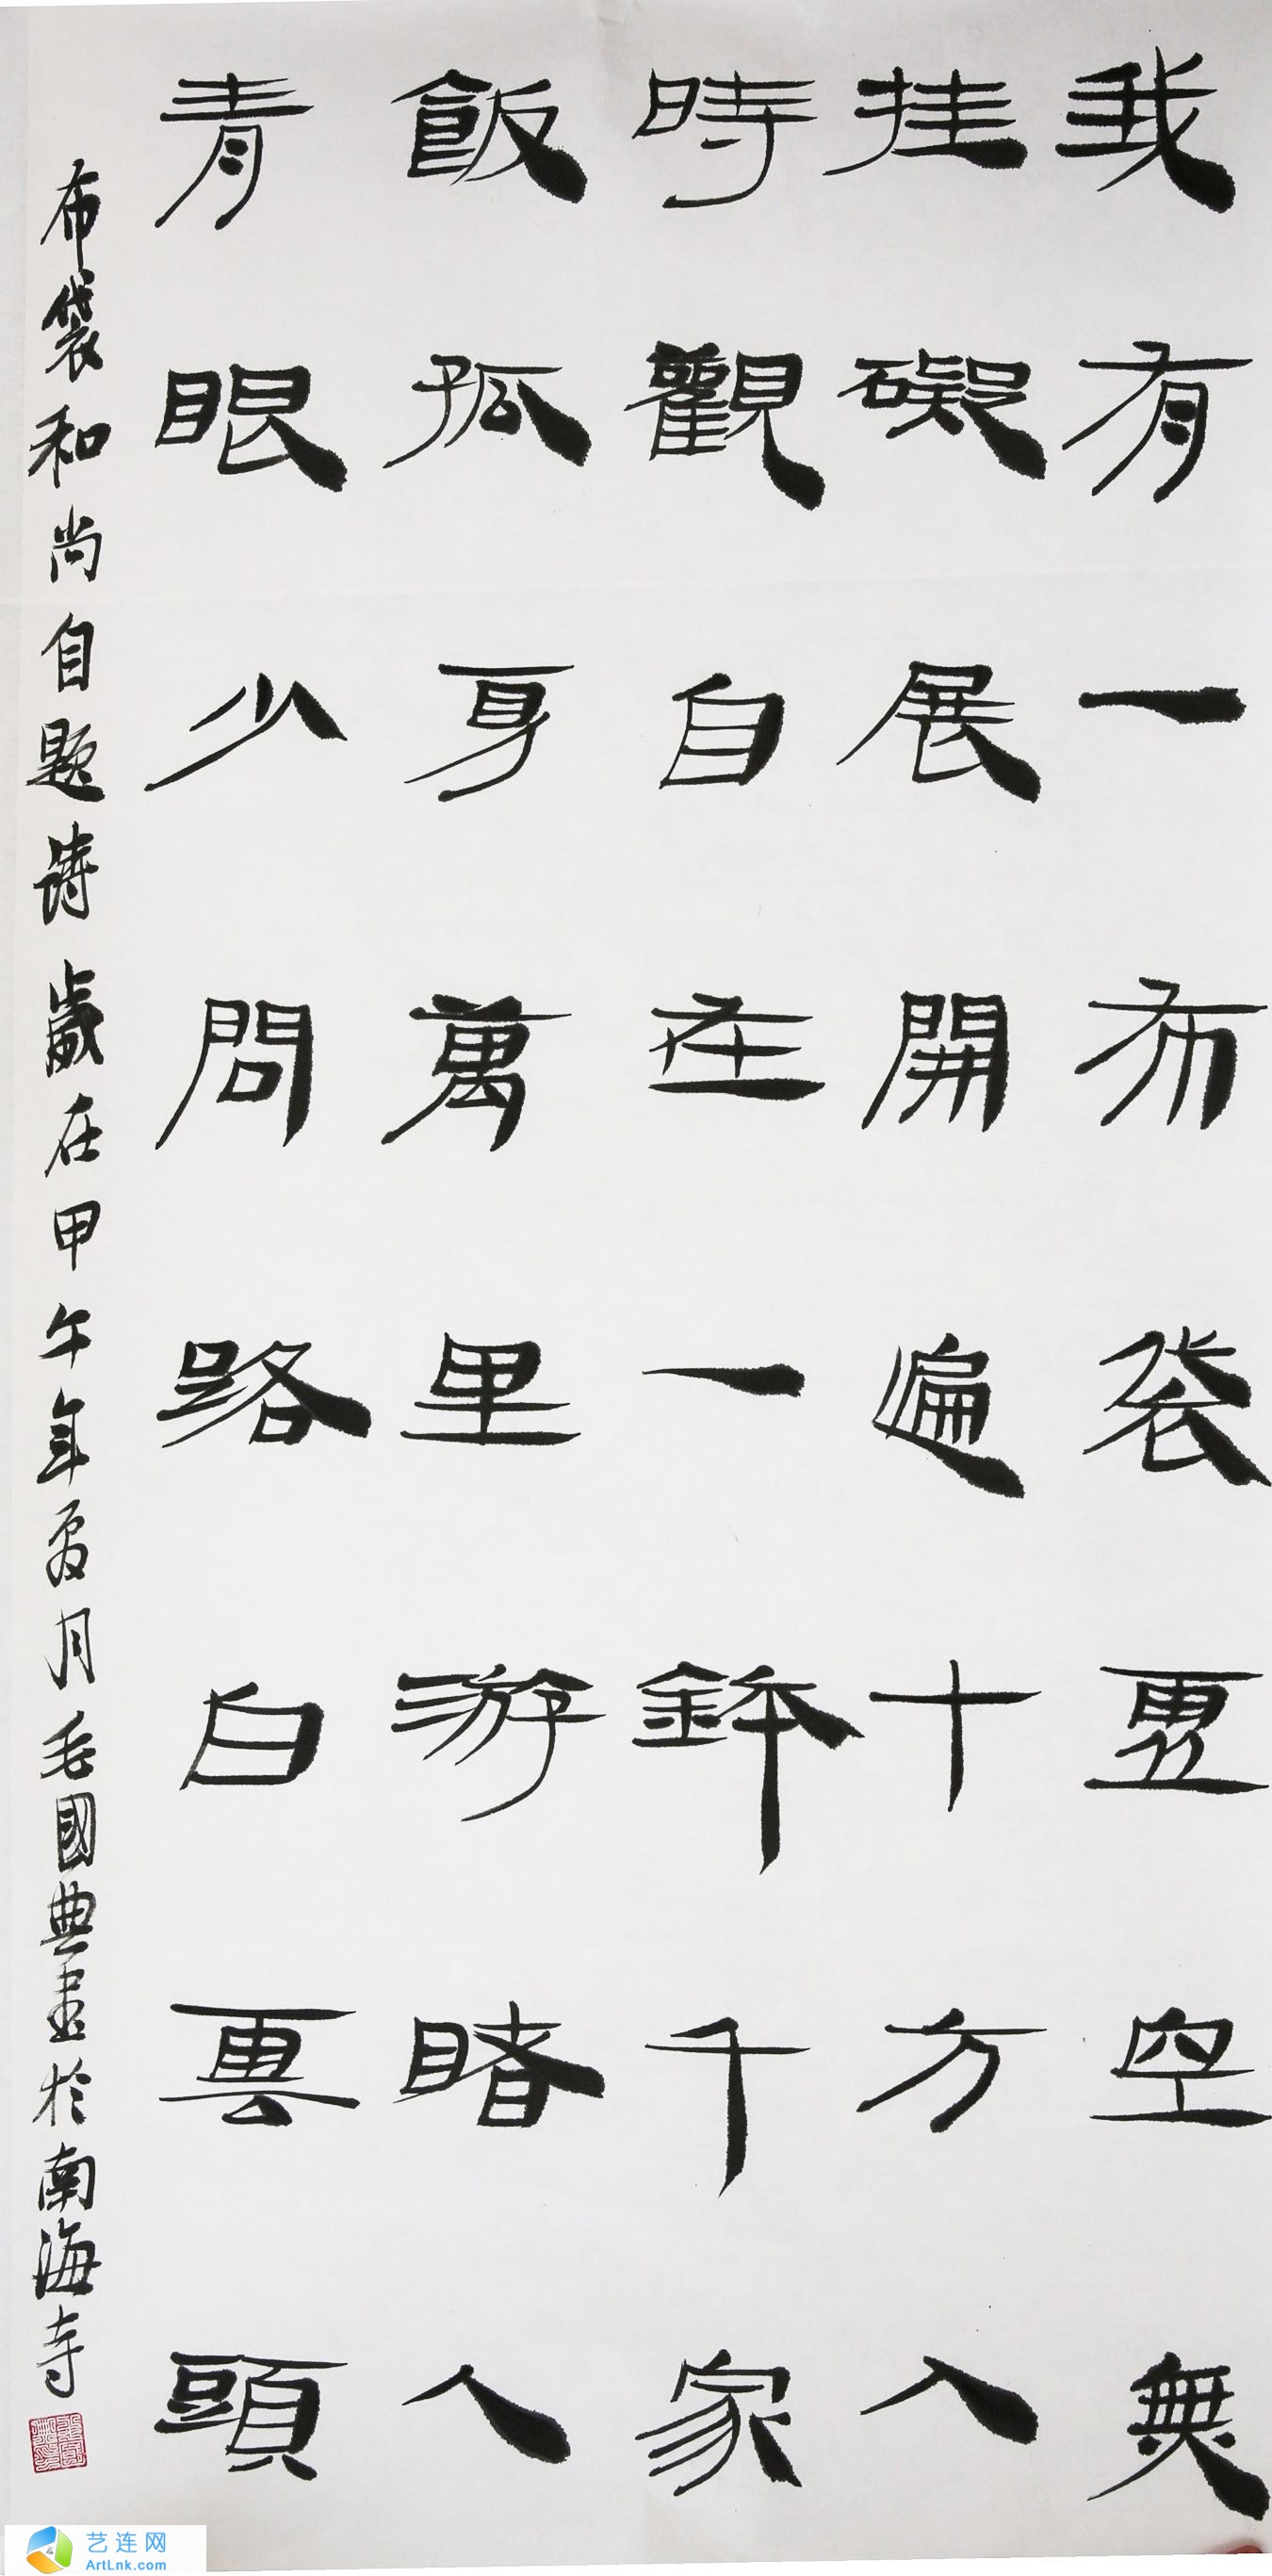 我有一布袋虛空無
挂礙展開遍十方入
時觀自在一鉢千家
飯孤身萬里游睹人
青眼少問路白雲頭
布袋和尚自題詩歲在甲午年夏月毛國典書於南海寺
艺连网
ArtLnk.com